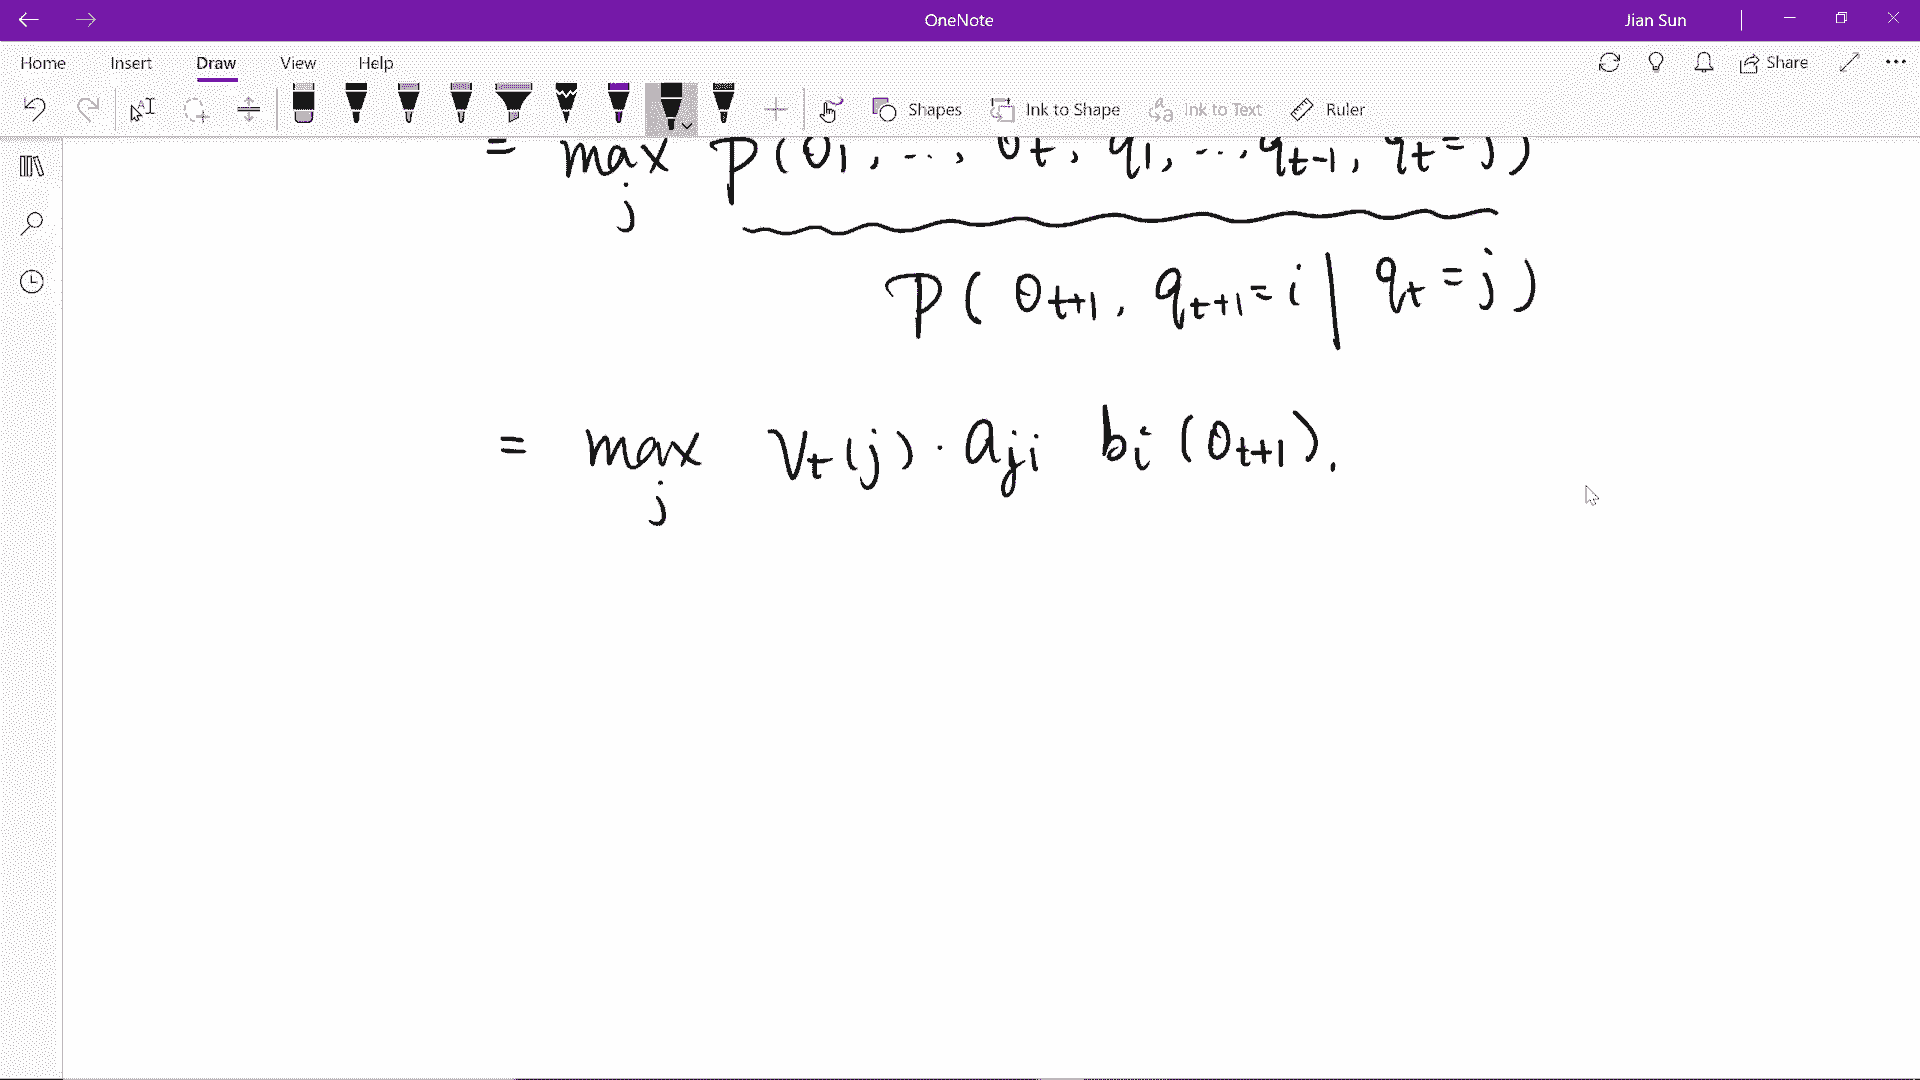 OneNote
Jian Sun
Home Insert Draw View Help
Share
Shapes Ink to Shape Ink to Text Ruler
= max P(O1, ..., Ot, q1, ..., qt-1, qt = j)
j
P(Ot+1, qt+1 = i | qt = j)
= max Vt(j) · aji bi(Ot+1).
j